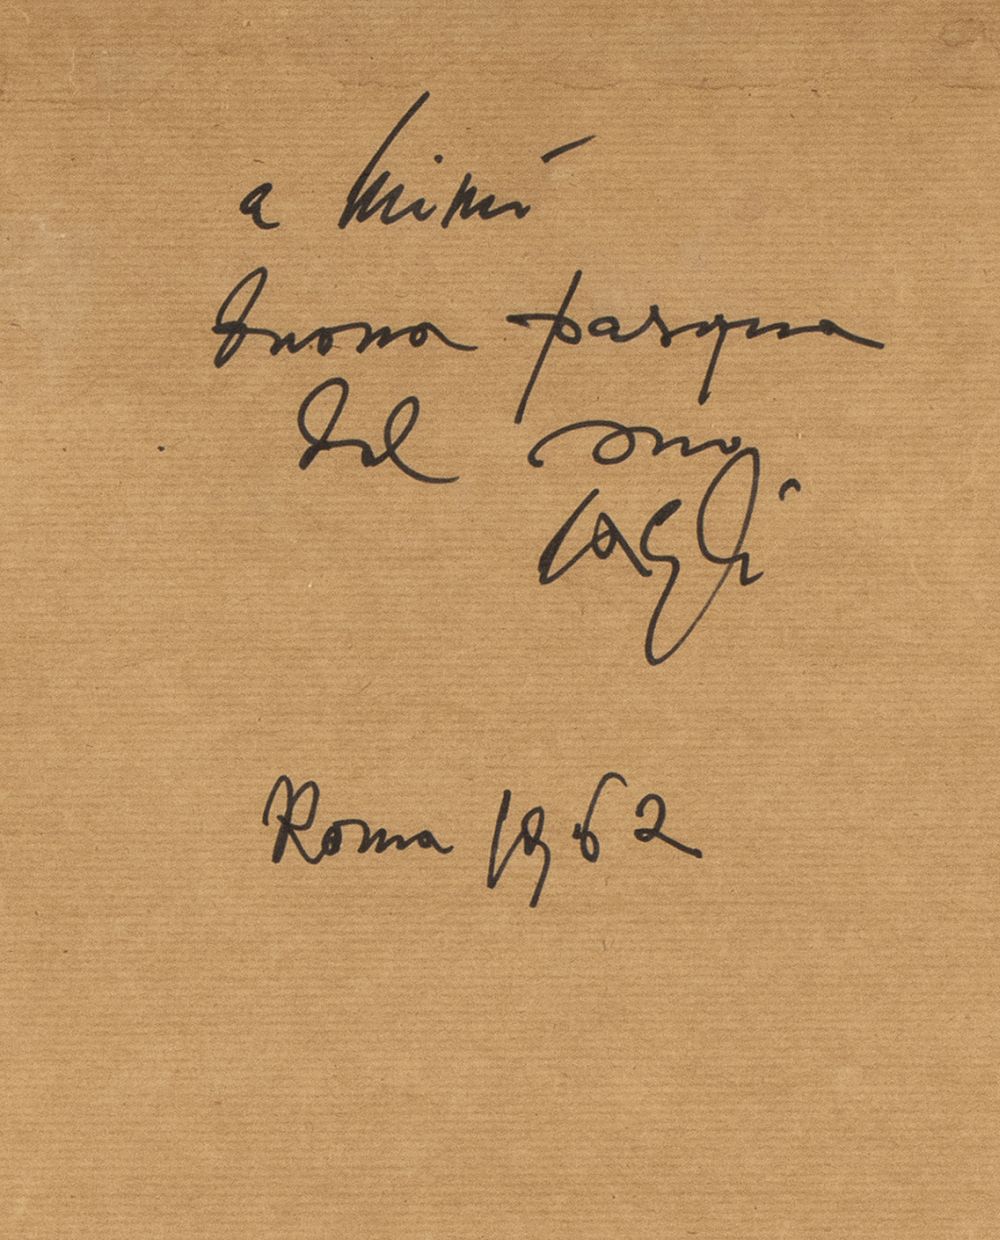 a Mimì
buona pasqua
dal suo
Cagli
Roma 1962